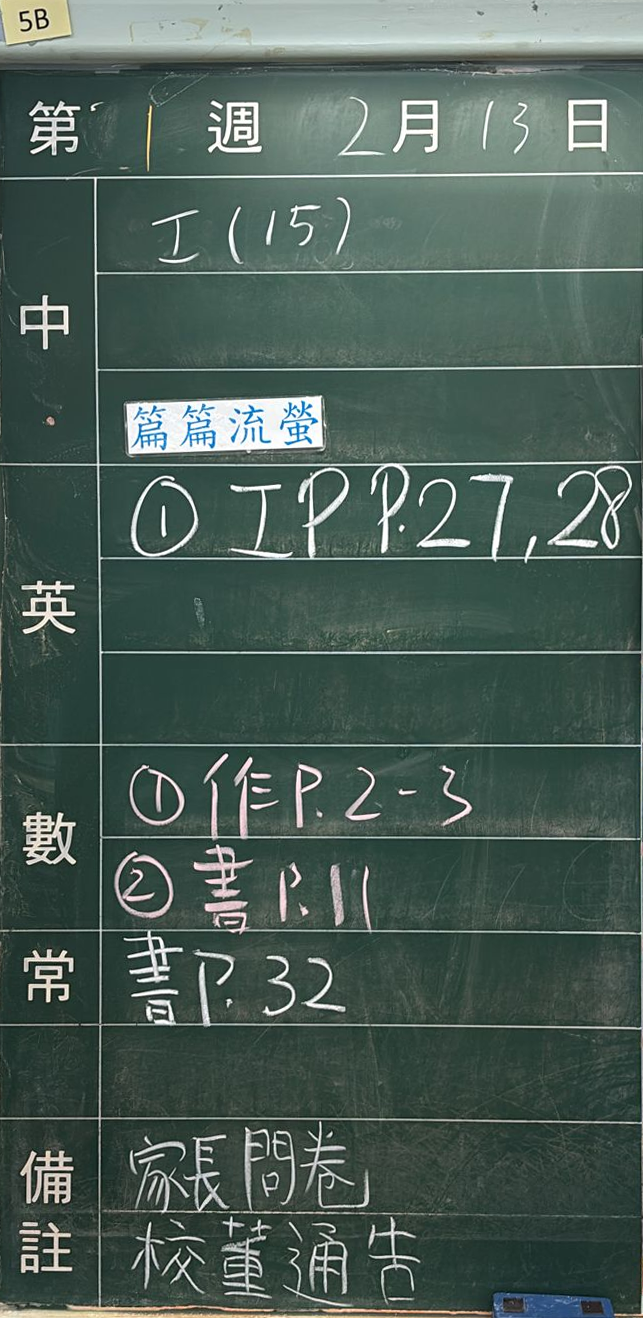 5B
第 1 週 2月13日
中
工(15)
篇篇流螢
英
① IP P.27,28
數
① 作P.2-3
② 書P.11
常
書P.32
備註
家長問卷
校董通告